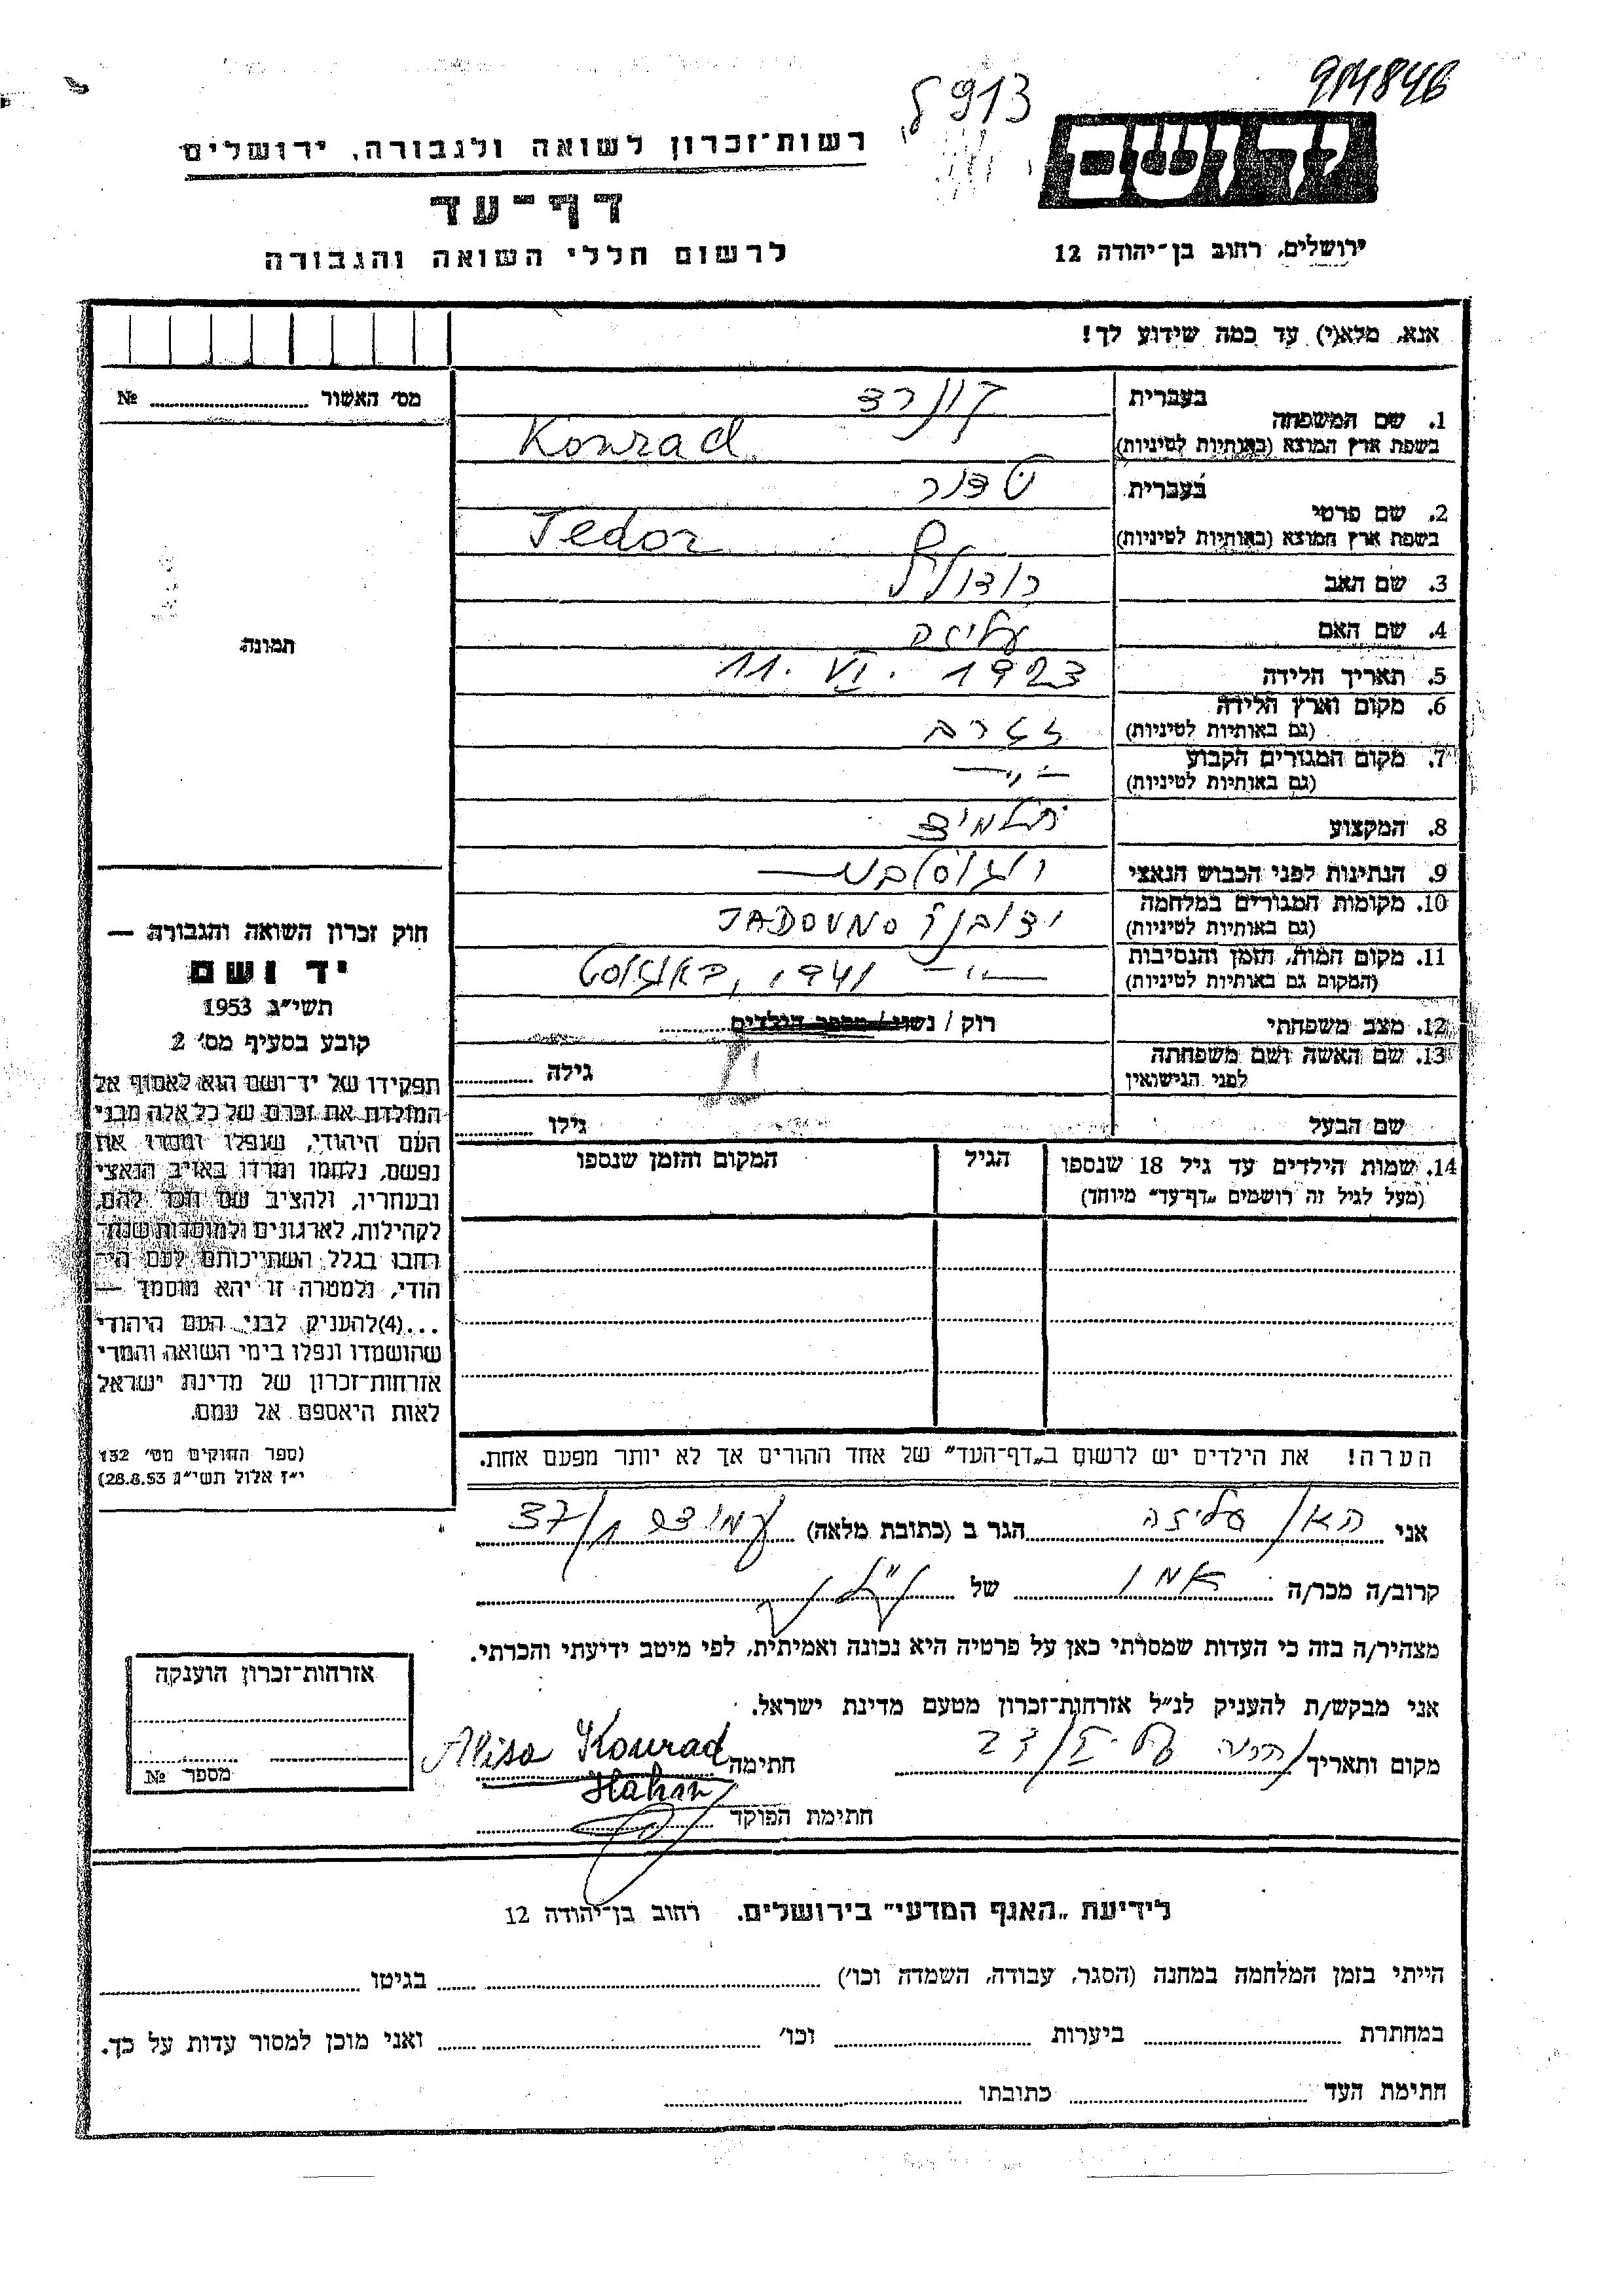 914846
913
רשות־זכרון לשואה ולגבורה, ירושלים
דף־עד
לרשום חללי השואה והגבורה
ידושם
ירושלים, רחוב בן־יהודה 12
אנא, מלא(י) עד כמה שידוע לך!
מס׳ האשור № 
1. שם המשפחה
בעברית קונרד
בשפת ארץ המוצא (באותיות לטיניות) Konrad
2. שם פרטי
בעברית טדור
בשפת ארץ המוצא (באותיות לטיניות) Tedor
3. שם האב רודולף
4. שם האם עליזה
5. תאריך הלידה 11. VI. 1923
6. מקום וארץ הלידה
(גם באותיות לטיניות) זגרב
7. מקום המגורים הקבוע
(גם באותיות לטיניות) — " —
8. המקצוע תלמיד
9. הנתינות לפני הכבוש הנאצי
10. מקומות המגורים במלחמה
(גם באותיות לטיניות) JADOVNO
11. מקום המות, הזמן והנסיבות
(המקום גם באותיות לטיניות) — " — 1941, באוגוסט
12. מצב משפחתי רוק / נשוי / מספר הילדים
13. שם האשה ושם משפחתה
לפני הנישואין גילה
שם הבעל גילו
14. שמות הילדים עד גיל 18 שנספו
(מעל לגיל זה רושמים „דף־עד״ מיוחד)
הגיל
המקום והזמן שנספו
תמונה
חוק זכרון השואה והגבורה —
יד ושם
תשי״ג 1953
קובע בסעיף מס׳ 2
תפקידו של יד־ושם הוא לאסוף אל
המולדת את זכרם של כל אלה מבני
העם היהודי, שנפלו ומסרו את
נפשם, נלחמו ומרדו באויב הנאצי
ובעוזריו, ולהציב שם וזכר להם,
לקהילות, לארגונים ולמוסדות שנח־
רבו בגלל השתייכותם לעם הי־
הודי, ולמטרה זו יהא מוסמך —
...(4)להעניק לבני העם היהודי
שהושמדו ונפלו בימי השואה והמרי
אזרחות־זכרון של מדינת ישראל
לאות היאספם אל עמם.
(ספר החוקים מס׳ 132
י״ז אלול תשי״ג 28.8.53)
הערה! את הילדים יש לרשום ב„דף־העד״ של אחד ההורים אך לא יותר מפעם אחת.
אני האן עליזה הגר ב (כתובת מלאה) 37/1
קרוב/ה מכר/ה אמו של הנ״ל
מצהיר/ה בזה כי העדות שמסרתי כאן על פרטיה היא נכונה ואמיתית, לפי מיטב ידיעתי והכרתי.
אני מבקש/ת להעניק לנ״ל אזרחות־זכרון מטעם מדינת ישראל.
מקום ותאריך חתימה Alisa Konrad
Hahn
חתימת הפוקד
אזרחות־זכרון הוענקה
מספר №
לידיעת „האגף המדעי״ בירושלים, רחוב בן־יהודה 12
הייתי בזמן המלחמה במחנה (הסגר, עבודה, השמדה וכו׳) בגיטו
במחתרת ביערות וכו׳ ואני מוכן למסור עדות על כך.
חתימת העד כתובתו